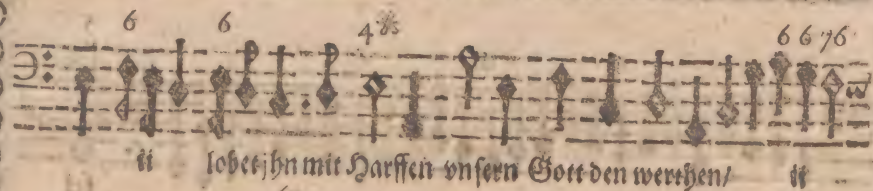 6 6 4 ♯ 6 6 76
ij lobet jhn mit Harffen vnsern Gott den werthen/ ij